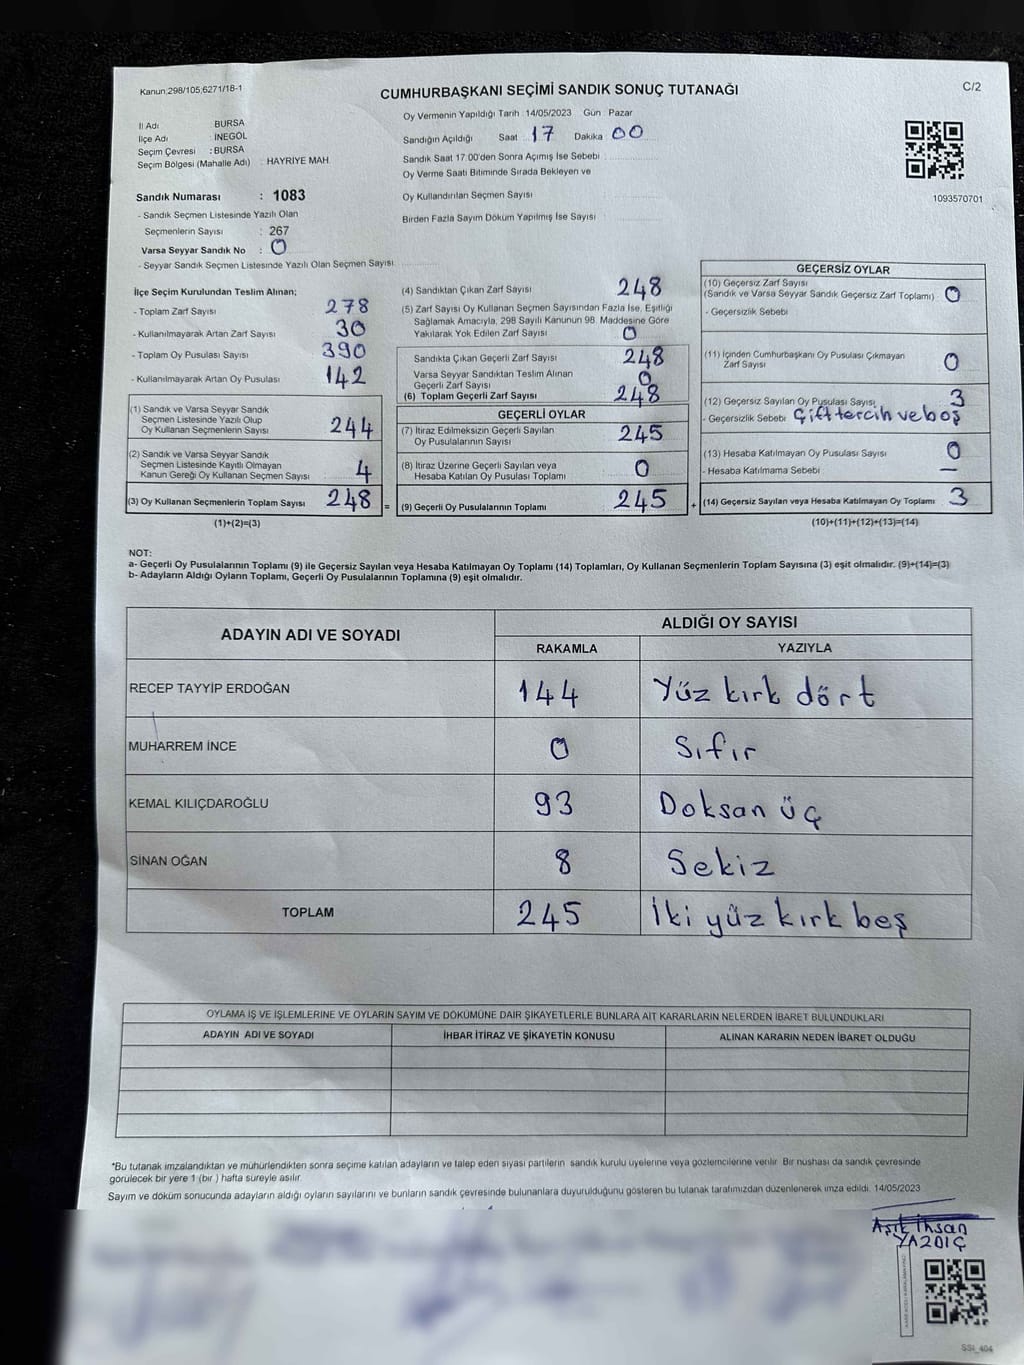 Kanun,298/105,6271/18-1
CUMHURBAŞKANI SEÇİMİ SANDIK SONUÇ TUTANAĞI
C/2
İl Adı BURSA
İlçe Adı : İNEGÖL
Seçim Çevresi : BURSA
Seçim Bölgesi (Mahalle Adı) : HAYRİYE MAH.
Oy Vermenin Yapıldığı Tarih 14/05/2023 Gün Pazar
Sandığın Açıldığı Saat 17 Dakika 00
Sandık Saat 17.00'den Sonra Açımış İse Sebebi
Oy Verme Saati Bitiminde Sırada Bekleyen ve
Oy Kullandırılan Seçmen Sayısı
Birden Fazla Sayım Döküm Yapılmış İse Sayısı
1093570701
Sandık Numarası : 1083
- Sandık Seçmen Listesinde Yazılı Olan
Seçmenlerin Sayısı : 267
Varsa Seyyar Sandık No : 0
- Seyyar Sandık Seçmen Listesinde Yazılı Olan Seçmen Sayısı
İlçe Seçim Kurulundan Teslim Alınan;
- Toplam Zarf Sayısı 278
- Kullanılmayarak Artan Zarf Sayısı 30
- Toplam Oy Pusulası Sayısı 390
- Kullanılmayarak Artan Oy Pusulası 142
(1) Sandık ve Varsa Seyyar Sandık
Seçmen Listesinde Yazılı Olup
Oy Kullanan Seçmenlerin Sayısı 244
(2) Sandık ve Varsa Seyyar Sandık
Seçmen Listesinde Kayıtlı Olmayan
Kanun Gereği Oy Kullanan Seçmen Sayısı 4
(3) Oy Kullanan Seçmenlerin Toplam Sayısı 248 =
(1)+(2)=(3)
(4) Sandıktan Çıkan Zarf Sayısı 248
(5) Zarf Sayısı Oy Kullanan Seçmen Sayısından Fazla İse, Eşitliği
Sağlamak Amacıyla, 298 Sayılı Kanunun 98. Maddesine Göre
Yakılarak Yok Edilen Zarf Sayısı 0
Sandıkta Çıkan Geçerli Zarf Sayısı 248
Varsa Seyyar Sandıktan Teslim Alınan
Geçerli Zarf Sayısı 0
(6) Toplam Geçerli Zarf Sayısı 248
GEÇERLİ OYLAR
(7) İtiraz Edilmeksizin Geçerli Sayılan
Oy Pusulalarının Sayısı 245
(8) İtiraz Üzerine Geçerli Sayılan veya
Hesaba Katılan Oy Pusulası Toplamı 0
(9) Geçerli Oy Pusulalarının Toplamı 245 +
GEÇERSİZ OYLAR
(10) Geçersiz Zarf Sayısı
(Sandık ve Varsa Seyyar Sandık Geçersiz Zarf Toplamı) 0
- Geçersizlik Sebebi
(11) İçinden Cumhurbaşkanı Oy Pusulası Çıkmayan
Zarf Sayısı 0
(12) Geçersiz Sayılan Oy Pusulası Sayısı 3
- Geçersizlik Sebebi Çift tercih ve boş
(13) Hesaba Katılmayan Oy Pusulası Sayısı 0
- Hesaba Katılmama Sebebi —
(14) Geçersiz Sayılan veya Hesaba Katılmayan Oy Toplamı 3
(10)+(11)+(12)+(13)=(14)
NOT:
a- Geçerli Oy Pusulalarının Toplamı (9) ile Geçersiz Sayılan veya Hesaba Katılmayan Oy Toplamı (14) Toplamları, Oy Kullanan Seçmenlerin Toplam Sayısına (3) eşit olmalıdır. (9)+(14)=(3)
b- Adayların Aldığı Oyların Toplamı, Geçerli Oy Pusulalarının Toplamına (9) eşit olmalıdır.
ADAYIN ADI VE SOYADI
ALDIĞI OY SAYISI
RAKAMLA YAZIYLA
RECEP TAYYİP ERDOĞAN 144 Yüz kırk dört
MUHARREM İNCE 0 Sıfır
KEMAL KILIÇDAROĞLU 93 Doksan üç
SİNAN OĞAN 8 Sekiz
TOPLAM 245 İki yüz kırk beş
OYLAMA İŞ VE İŞLEMLERİNE VE OYLARIN SAYIM VE DÖKÜMÜNE DAİR ŞİKAYETLERLE BUNLARA AİT KARARLARIN NELERDEN İBARET BULUNDUKLARI
ADAYIN ADI VE SOYADI İHBAR İTİRAZ VE ŞİKAYETİN KONUSU ALINAN KARARIN NEDEN İBARET OLDUĞU
*Bu tutanak imzalandıktan ve mühürlendikten sonra seçime katılan adayların ve talep eden siyasi partilerin sandık kurulu üyelerine veya gözlemcilerine verilir. Bir nüshası da sandık çevresinde
görülecek bir yere 1 (bir ) hafta süreyle asılır.
Sayım ve döküm sonucunda adayların aldığı oyların sayılarını ve bunların sandık çevresinde bulunanlara duyurulduğunu gösteren bu tutanak tarafımızdan düzenlenerek imza edildi. 14/05/2023
Aşık İhsan
SSI_404